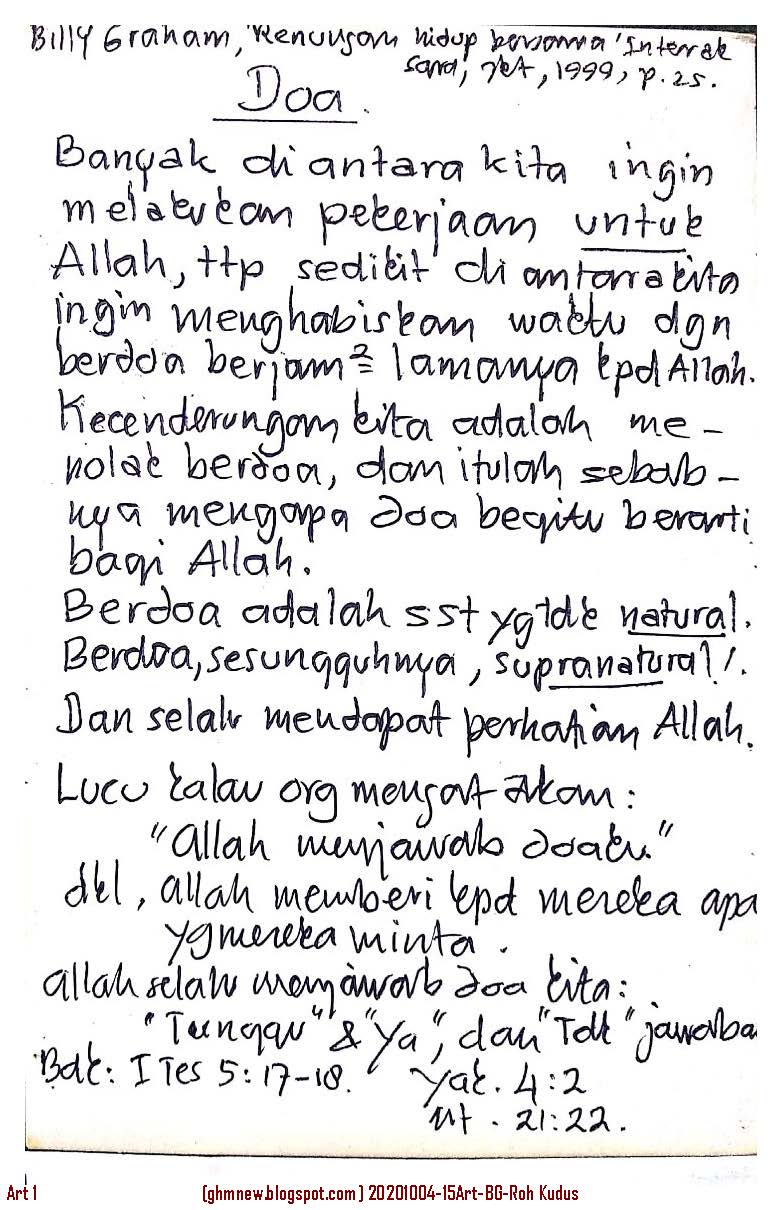 Billy Graham, 'Renungan hidup bersama' Interak
sara, 1999, p. 25.
Doa.
Banyak di antara kita ingin
melakukan pekerjaan untuk
Allah, ttp sedikit di antara kita
ingin menghabiskan waktu dgn
berdoa berjam² lamanya kpd Allah.
Kecenderungan kita adalah me-
nolak berdoa, dan itulah sebab-
nya mengapa doa begitu berarti
bagi Allah.
Berdoa adalah sst yg tdk natural.
Berdoa, sesungguhnya, supranatural!.
Dan selalu mendapat perhatian Allah.
Lucu kalau org mengatakan:
"Allah menjawab doaku."
dkl, Allah memberi kpd mereka apa
yg mereka minta.
Allah selalu menjawab doa kita:
"Tunggu" & "Ya", dan "Tdk" jawaba
Bdk: I Tes 5:17-18. Yak. 4:2
Mt. 21:22.
Art 1 (ghmnew.blogspot.com) 20201004-15Art-BG-Roh Kudus